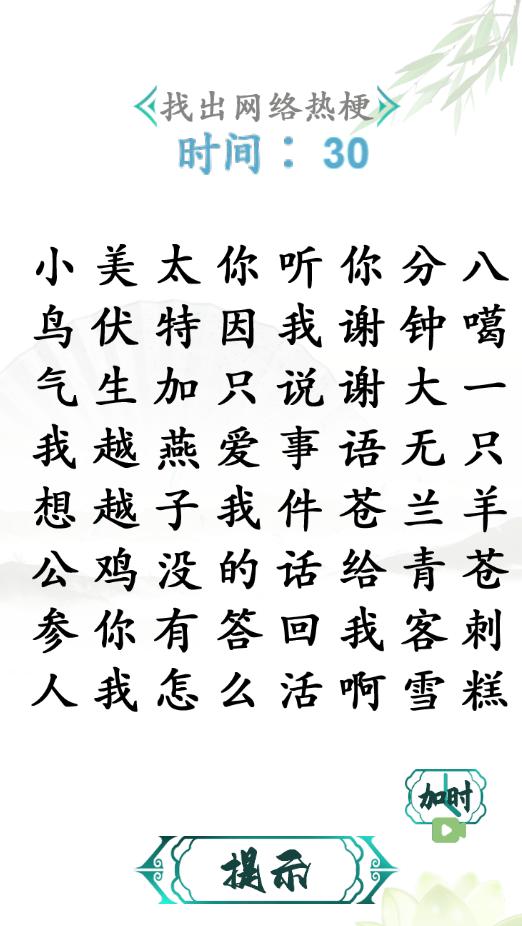 找出网络热梗
时间：30
小美太你听你分八
鸟伏特因我谢钟噶
气生加只说谢大一
我越燕爱事语无只
想越子我件苍兰羊
公鸡没的话给青苍
参你有答回我客刺
人我怎么活啊雪糕
加时
提示